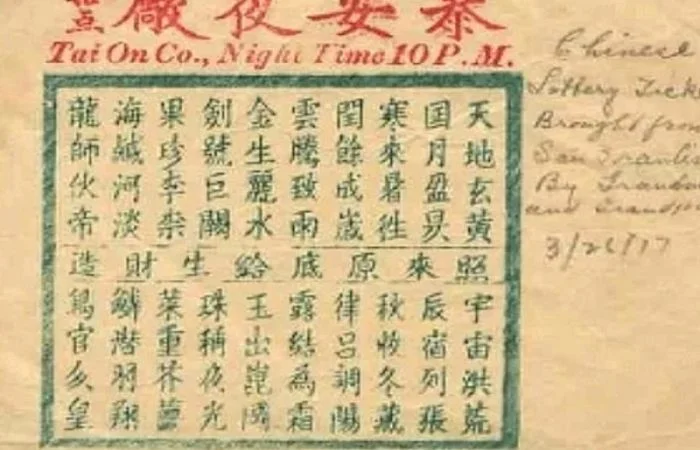 泰安夜廠
Tai On Co., Night Time 10 P.M.
天地玄黃
囯月盈昃
寒來暑徃
閏餘成歲
雲騰致雨
金生麗水
劍號巨闕
果珍李柰
海鹹河淡
龍師伙帝
照來原底給生財造
宇宙洪荒
辰宿列張
秋收冬藏
律呂調陽
露結為霜
玉出崑
珠稱夜光
菜重芥薑
鱗潛羽翔
鳥官皇
Chinese
Lottery Tick
Brought from
San
By
and
3/26/17